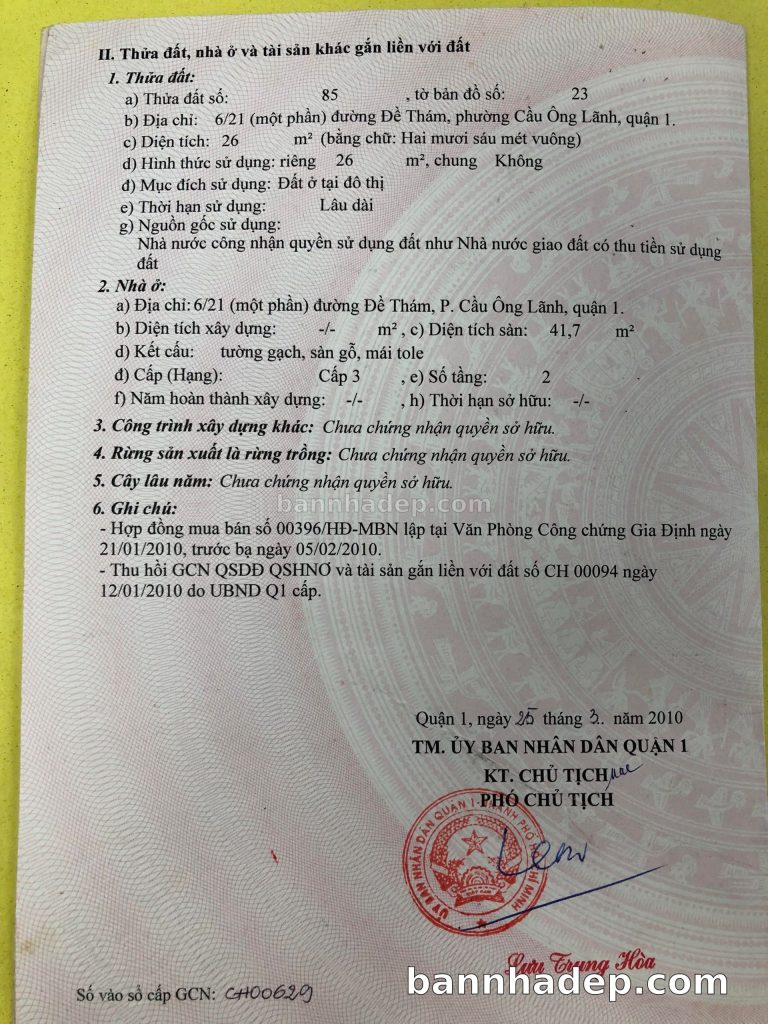 II. Thửa đất, nhà ở và tài sản khác gắn liền với đất
1. Thửa đất:
a) Thửa đất số: 85 , tờ bản đồ số: 23
b) Địa chỉ: 6/21 (một phần) đường Đề Thám, phường Cầu Ông Lãnh, quận 1.
c) Diện tích: 26 m² (bằng chữ: Hai mươi sáu mét vuông)
d) Hình thức sử dụng: riêng 26 m², chung Không
đ) Mục đích sử dụng: Đất ở tại đô thị
e) Thời hạn sử dụng: Lâu dài
g) Nguồn gốc sử dụng:
Nhà nước công nhận quyền sử dụng đất như Nhà nước giao đất có thu tiền sử dụng
đất
2. Nhà ở:
a) Địa chỉ: 6/21 (một phần) đường Đề Thám, P. Cầu Ông Lãnh, quận 1.
b) Diện tích xây dựng: -/- m² , c) Diện tích sàn: 41,7 m²
d) Kết cấu: tường gạch, sàn gỗ, mái tole
đ) Cấp (Hạng): Cấp 3 , e) Số tầng: 2
f) Năm hoàn thành xây dựng: -/- , h) Thời hạn sở hữu: -/-
3. Công trình xây dựng khác: Chưa chứng nhận quyền sở hữu.
4. Rừng sản xuất là rừng trồng: Chưa chứng nhận quyền sở hữu.
5. Cây lâu năm: Chưa chứng nhận quyền sở hữu.
bannhadep.com
6. Ghi chú:
- Hợp đồng mua bán số 00396/HĐ-MBN lập tại Văn Phòng Công chứng Gia Định ngày
21/01/2010, trước bạ ngày 05/02/2010.
- Thu hồi GCN QSDĐ QSHNƠ và tài sản gắn liền với đất số CH 00094 ngày
12/01/2010 do UBND Q1 cấp.
Quận 1, ngày 25 tháng 3. năm 2010
TM. ỦY BAN NHÂN DÂN QUẬN 1
KT. CHỦ TỊCH
PHÓ CHỦ TỊCH
ỦY BAN NHÂN DÂN QUẬN 1 - THÀNH PHỐ HỒ CHÍ MINH
Lưu Trung Hòa
bannhadep.com
Số vào sổ cấp GCN: CH00629